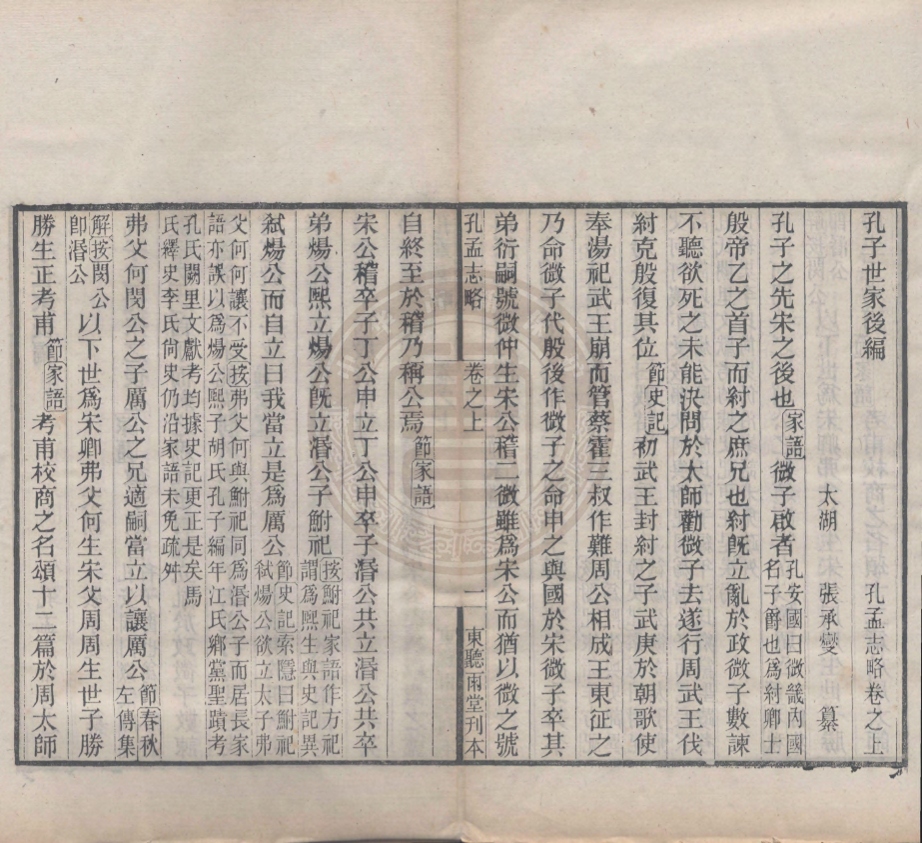 孔子世家後編　孔孟志略卷之上
太湖　張承燮　纂
孔子之先宋之後也家語微子啟者孔安國曰微畿內國名子爵也爲紂卿士
殷帝乙之首子而紂之庶兄也紂旣立亂於政微子數諫
不聽欲死之未能決問於太師勸微子去遂行周武王伐
紂克殷復其位節史記初武王封紂之子武庚於朝歌使
奉湯祀武王崩而管蔡霍三叔作難周公相成王東征之
乃命微子代殷後作微子之命申之與國於宋微子卒其
弟衍嗣號微仲生宋公稽二微雖爲宋公而猶以微之號
孔孟志略　卷之上　一　東聽雨堂刊本
自終至於稽乃稱公焉節家語
宋公稽卒子丁公申立丁公申卒子湣公共立湣公共卒
弟煬公熙立煬公旣立湣公子鮒祀按鮒祀家語作方祀謂爲熙生與史記異
弒煬公而自立曰我當立是爲厲公節史記索隱曰鮒祀弒煬公欲立太子弗
父何何讓不受按弗父何與鮒祀同爲湣公子而居長家
語亦誤以爲煬公熙子胡氏孔子編年江氏鄉黨聖蹟考
孔氏闕里文獻考均據史記更正是矣馬
氏繹史李氏尙史仍沿家語未免疏舛
弗父何閔公之子厲公之兄適嗣當立以讓厲公節春秋左傳集
解按閔公卽湣公以下世爲宋卿弗父何生宋父周周生世子勝
勝生正考甫節家語考甫校商之名頌十二篇於周太師